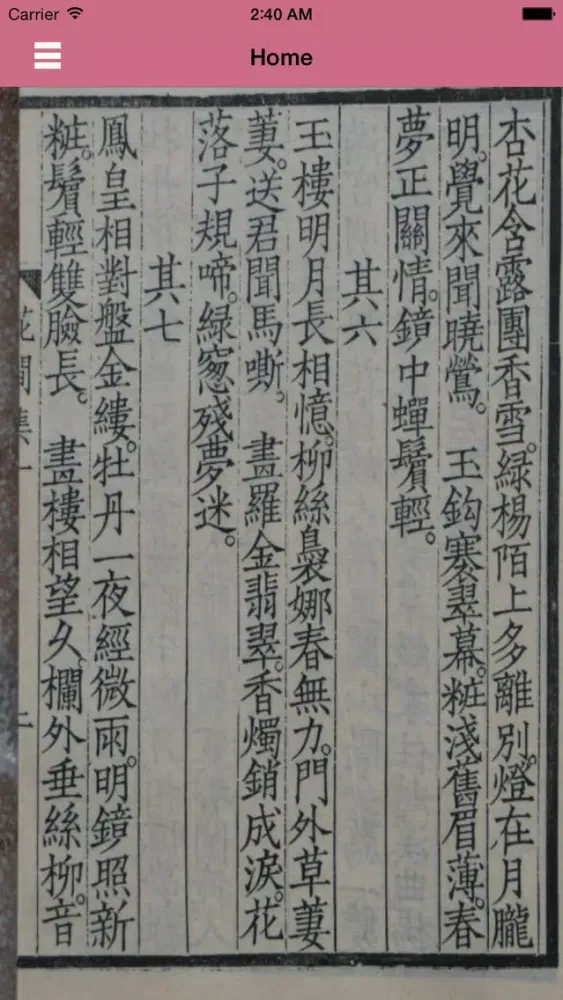 Carrier 2:40 AM
Home
杏花含露團香雪。綠楊陌上多離別。燈在月朧
明。覺來聞曉鶯。 玉鈎褰翠幕。粧淺舊眉薄。春
夢正關情。鏡中蟬鬢輕。
其六
玉樓明月長相憶。柳絲裊娜春無力。門外草萋
萋。送君聞馬嘶。 畫羅金翡翠。香燭銷成淚。花
落子規啼。綠窻殘夢迷。
其七
鳳皇相對盤金縷。牡丹一夜經微雨。明鏡照新
粧。鬢輕雙臉長。 畫樓相望久。欄外垂絲柳。音
花間集一 二